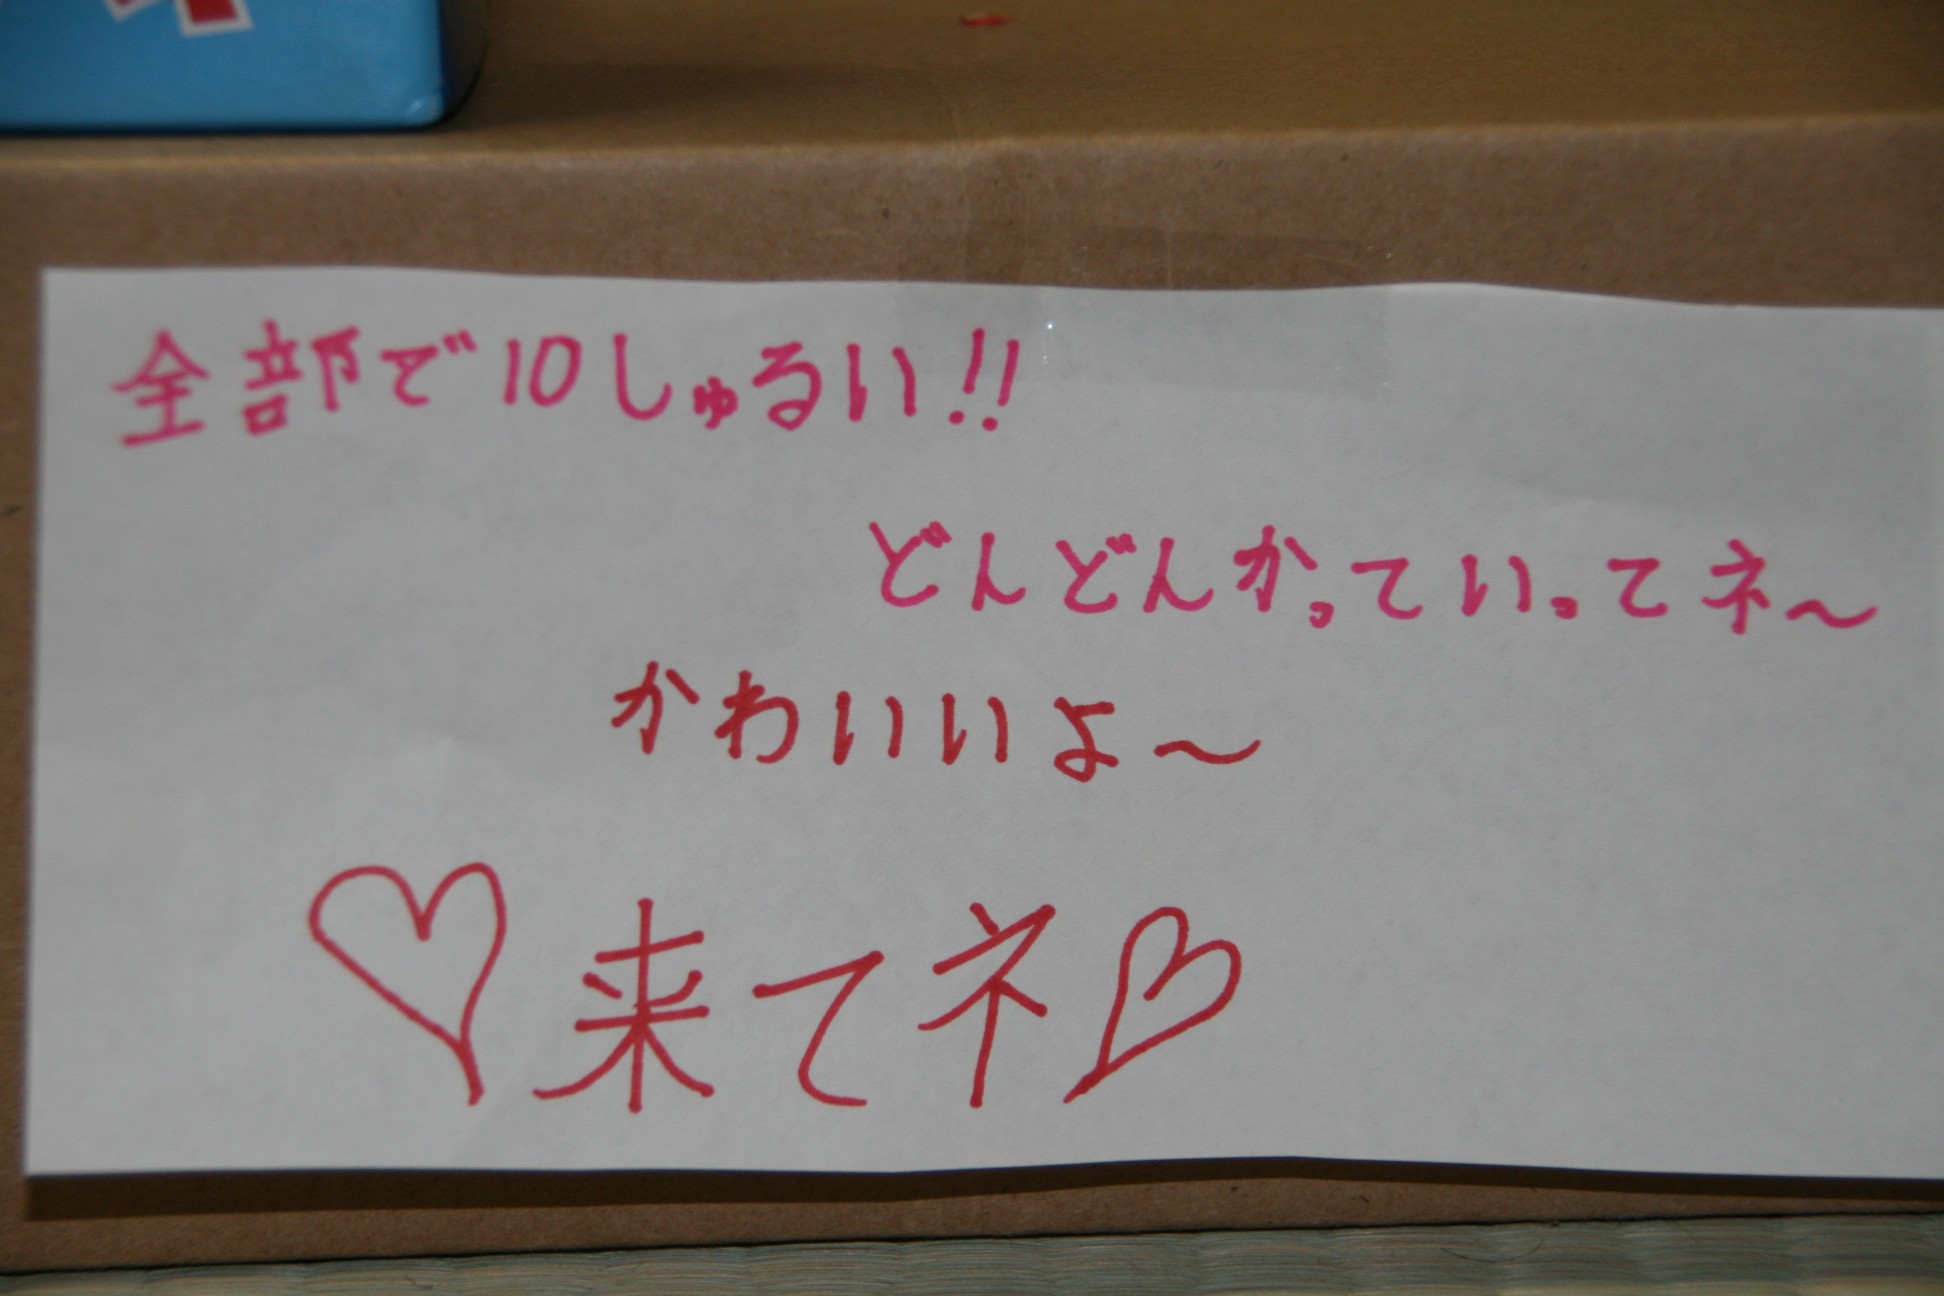 全部で10しゅるい!!
どんどんかっていってネ～
かわいいよ～
♡来てネ♡